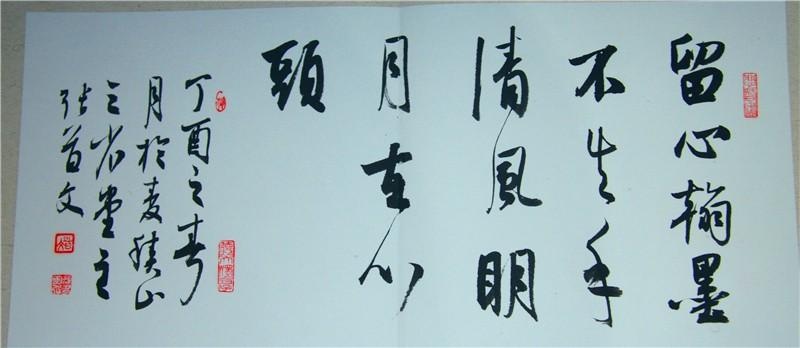 留心翰墨
不失手
清風明
月在心
頭
丁酉之春
月於麦積山
三省堂主
張首文